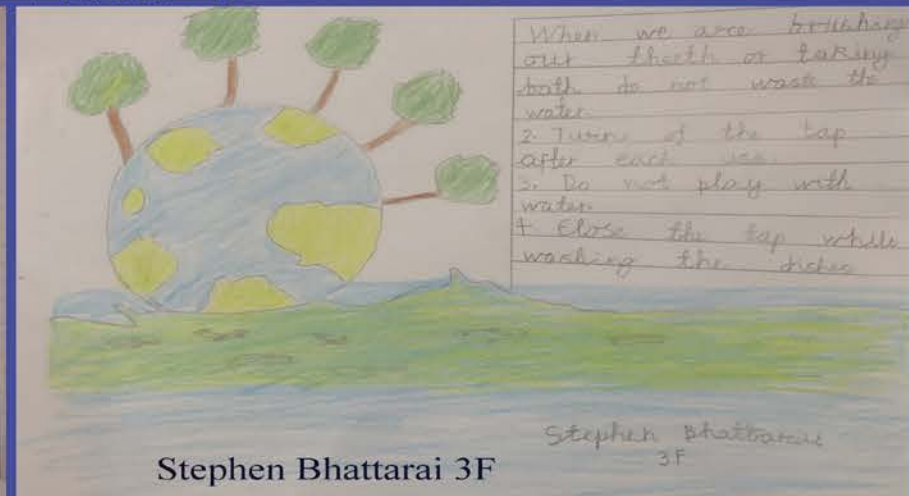 When we are brushing
our theeth or taking
bath do not waste the
water
2. Turn of the tap
after each use
3. Do not play with
water.
4 Close the tap while
washing the dishes
Stephen Bhattarai
3F
Stephen Bhattarai 3F